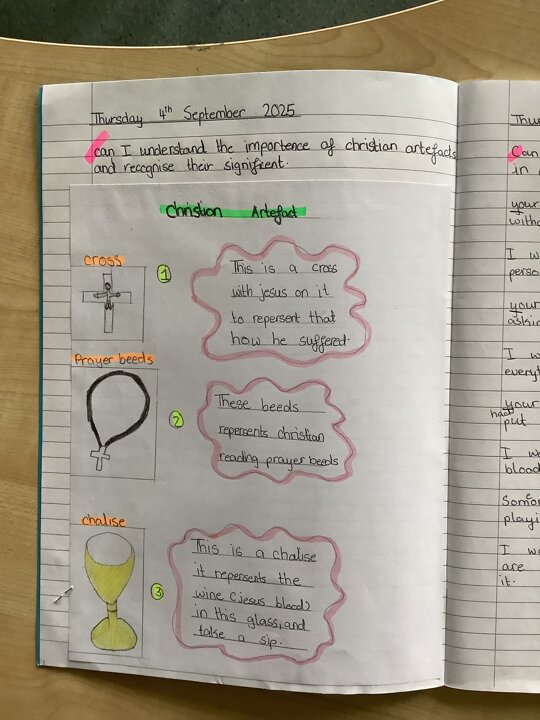 Thursday 4th September 2025
can I understand the importence of christian artefacts
and recognise their significent.
Christian Artefact
cross
1
This is a cross
with jesus on it
to repersent that
how he suffered.
Prayer beeds
2
These beeds
repersents christian
reading prayer beeds
chalise
3
This is a chalise
it repersents the
wine (jesus blood)
in this glass, and
take a sip.
in
your
I w
perso
your
askin
I w
everyt
your
had
put
I w
blood
Someo
playi
I w
are
it.